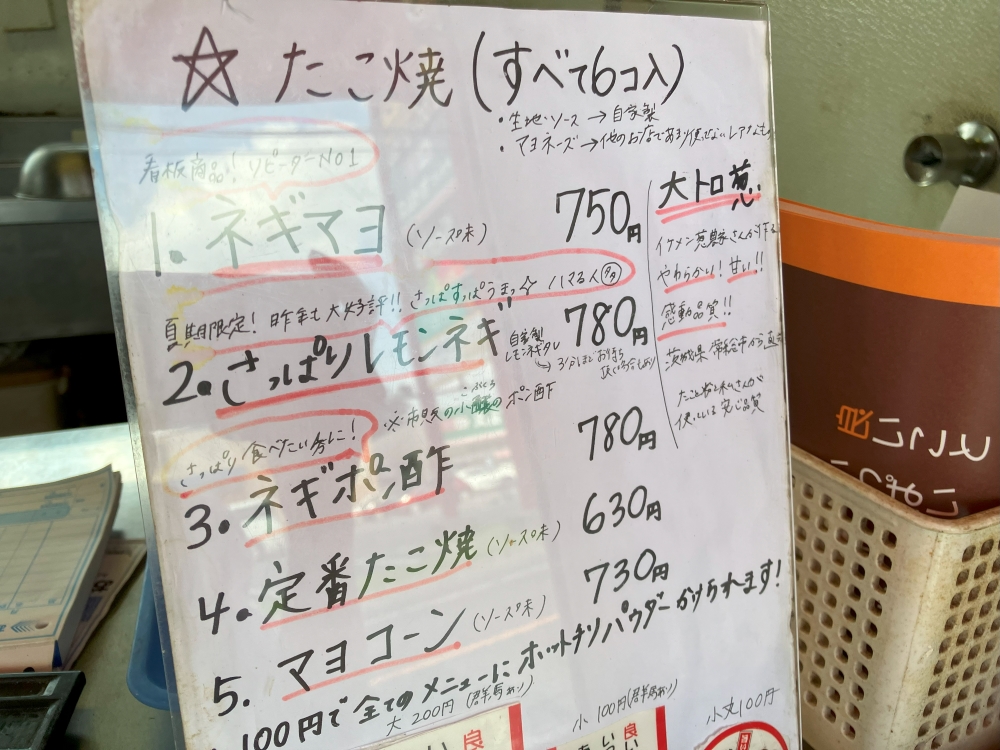 ☆ たこ焼 (すべて6コ入)
・生地・ソース → 自家製
・マヨネーズ → 他のお店であまり使せないレアなもの
看板商品! リピーターNO1
1. ネギマヨ (ソース味) 750円
夏期限定! 昨年も大好評!! さっぱすっぱうまっ☆ ハマる人多
2. さっぱりレモンネギ 780円
自家製
レモンネギダレ
3分ほどお待ち
頂く場合もあり
さっぱり食べたい方に!
3. ネギポン酢 780円
ポン酢
4. 定番たこ焼 (ソース味) 630円
5. マヨコーン (ソース味) 730円
100円で全てのメニューにホットチリパウダーかけられます!
大トロ葱
イケメン葱農家さんが作る
やわらかい! 甘い!!
感動品質!!
茨城県常総市から直
大 200円
小 100円
小丈100円